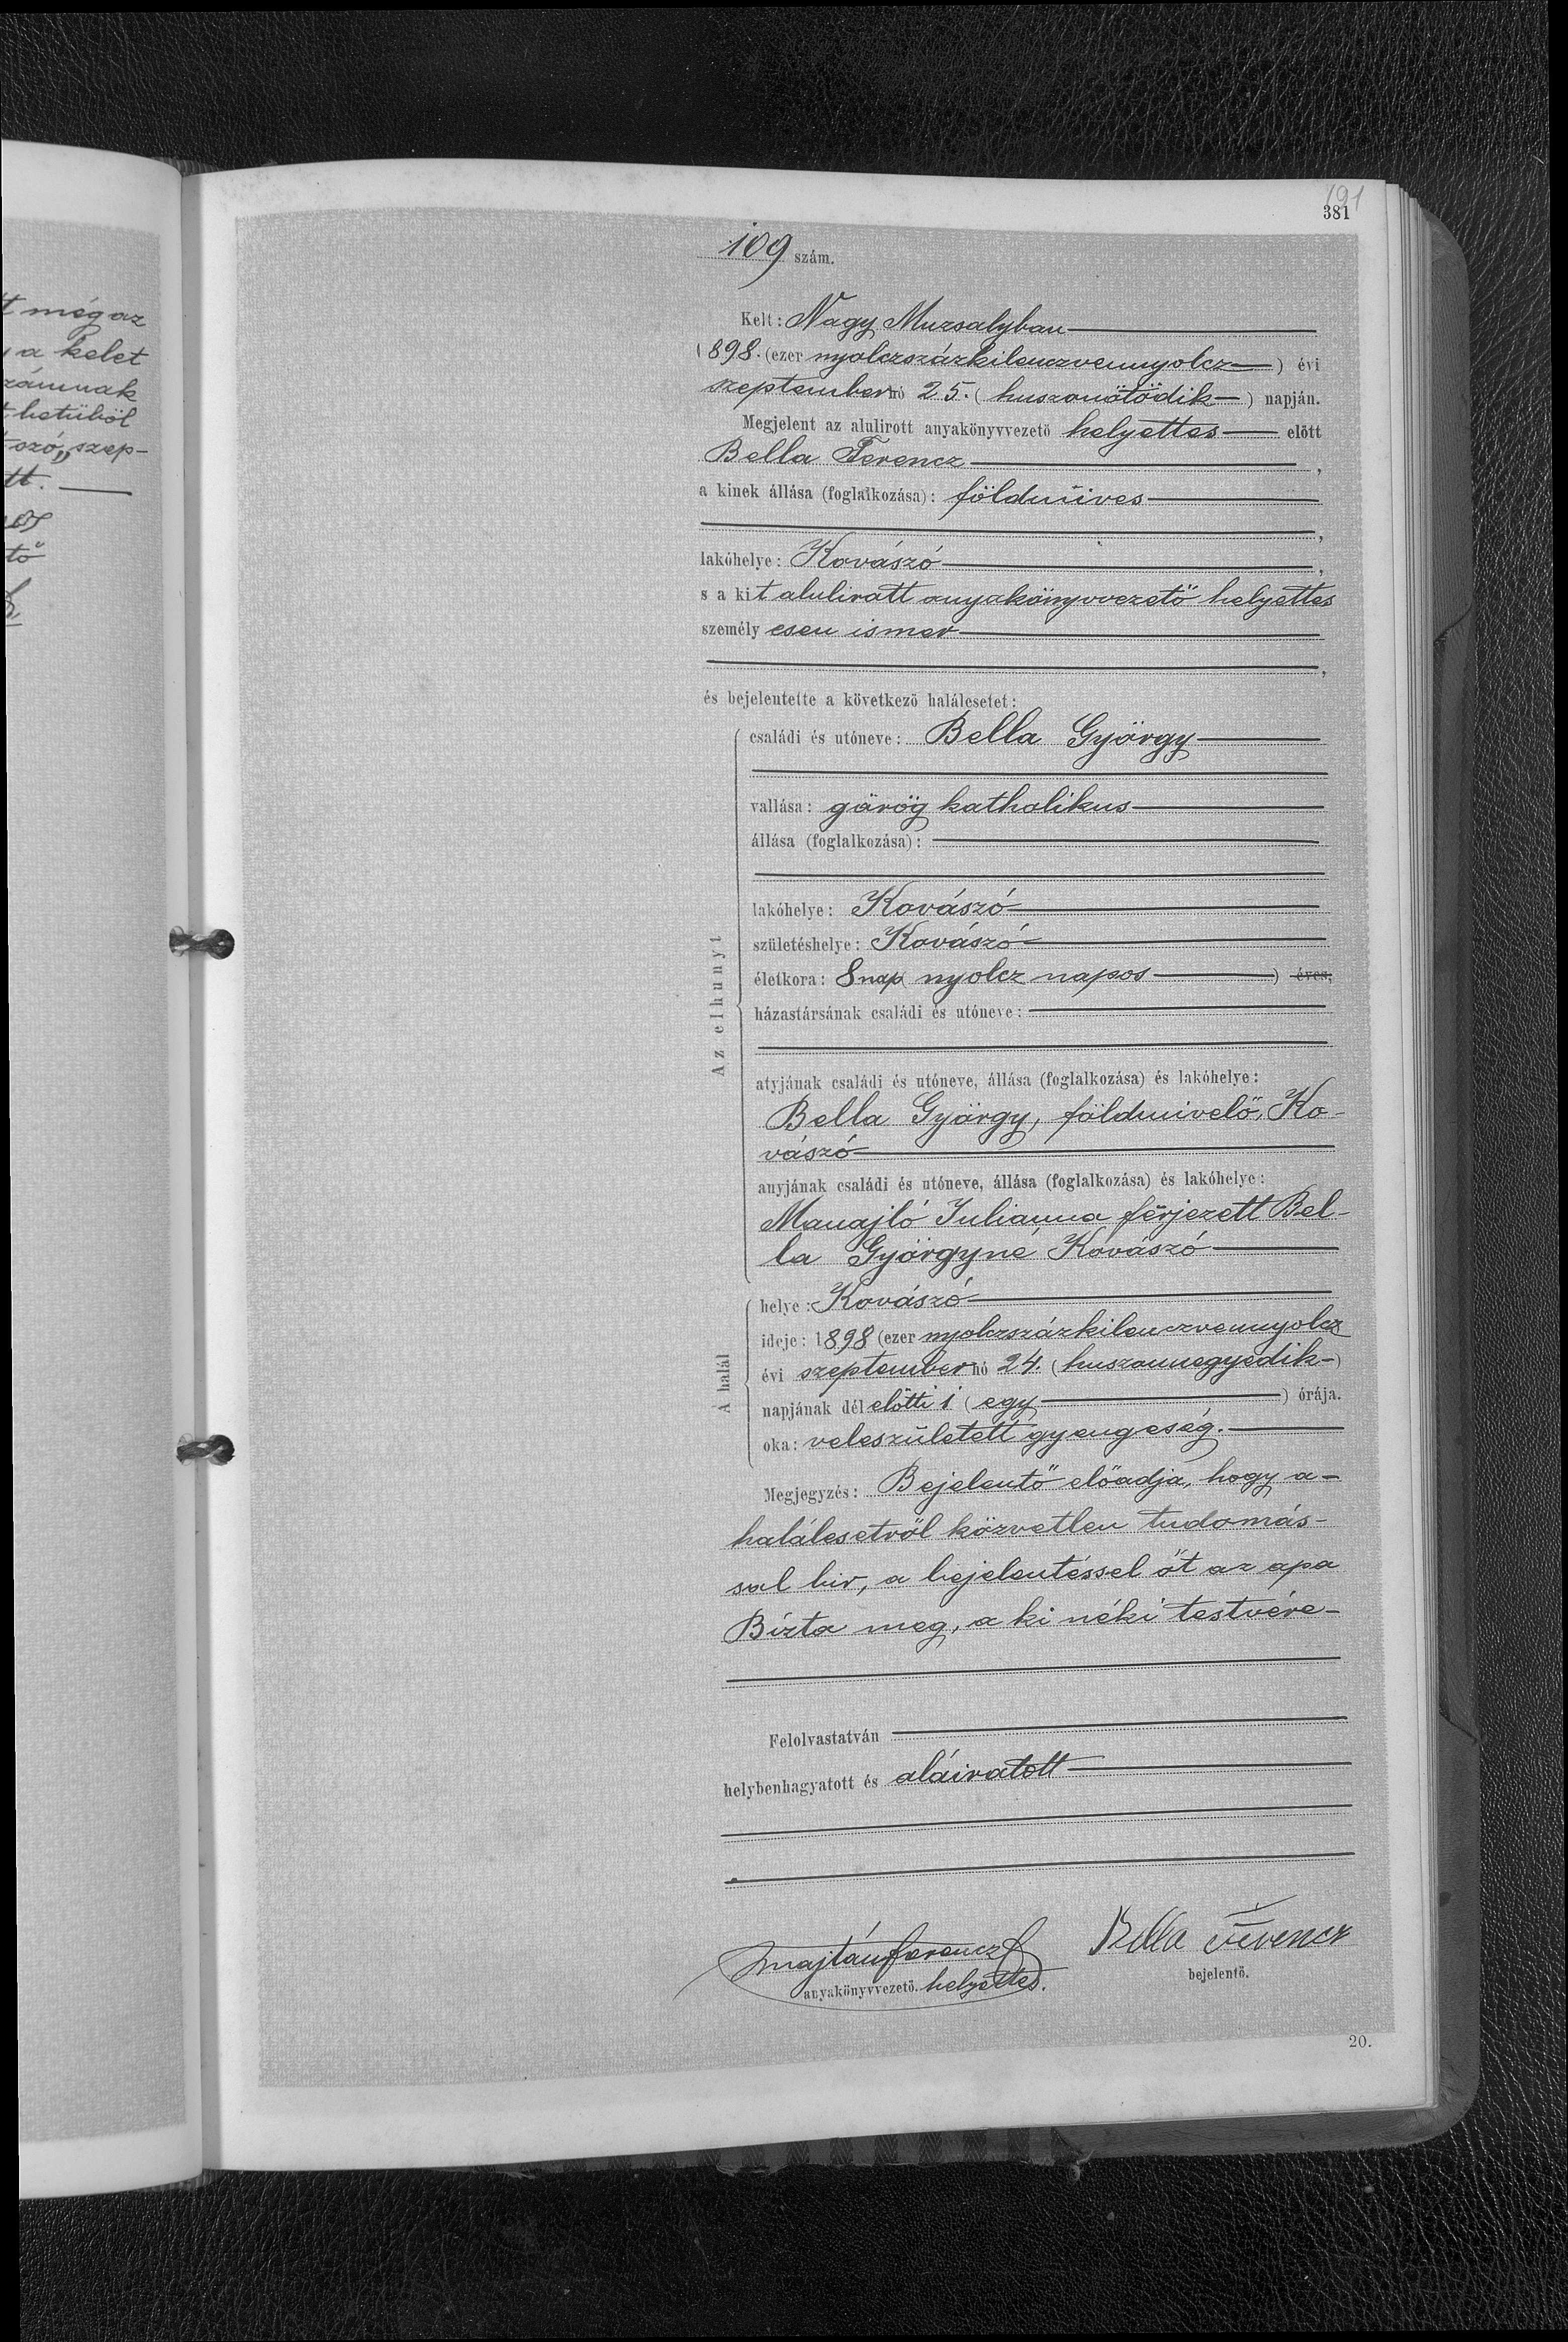 t még az
, a kelet
számnak
t betüböl
szó, „szep-
tt.
tő
191
381
109 szám.
Kelt: Nagy Muzsalyban
1898. (ezer nyolczszázkilenczvennyolcz) évi
szeptember hó 25. (huszonötödik) napján.
Megjelent az alulirott anyakönyvvezető helyettes előtt
Bella Ferencz,
a kinek állása (foglalkozása): földmíves
,
lakóhelye: Kovászó,
s a kit aluliratt anyakönyvvezető helyettes
személyesen ismer
,
és bejelentette a következő halálesetet:
Az elhunyt
családi és utóneve: Bella György
vallása: görög katholikus
állása (foglalkozása):
lakóhelye: Kovászó
születéshelye: Kovászó
életkora: 8 nap (nyolcz napos) éves,
házastársának családi és utóneve:
atyjának családi és utóneve, állása (foglalkozása) és lakóhelye:
Bella György, földmivelő, Ko-
vászó
anyjának családi és utóneve, állása (foglalkozása) és lakóhelye:
Manajló Julianna férjezett Bel-
la Györgyné Kovászó
A halál
helye: Kovászó
ideje: 1898 (ezer nyolczszázkilenczvennyolcz
évi szeptember hó 24. (huszonnegyedik)
napjának délelőtti 1 (egy) órája.
oka: veleszületett gyengeség.
Megjegyzés: Bejelentő előadja, hogy a-
halálesetről közvetlen tudomás-
sal bir, a bejelentéssel őt az apa
Bizta meg, a ki néki testvére-
Felolvastatván
helybenhagyatott és aláiratott
Majtán Ferencz
anyakönyvvezető. helyettes.
Bella Ferencz
bejelentő.
20.